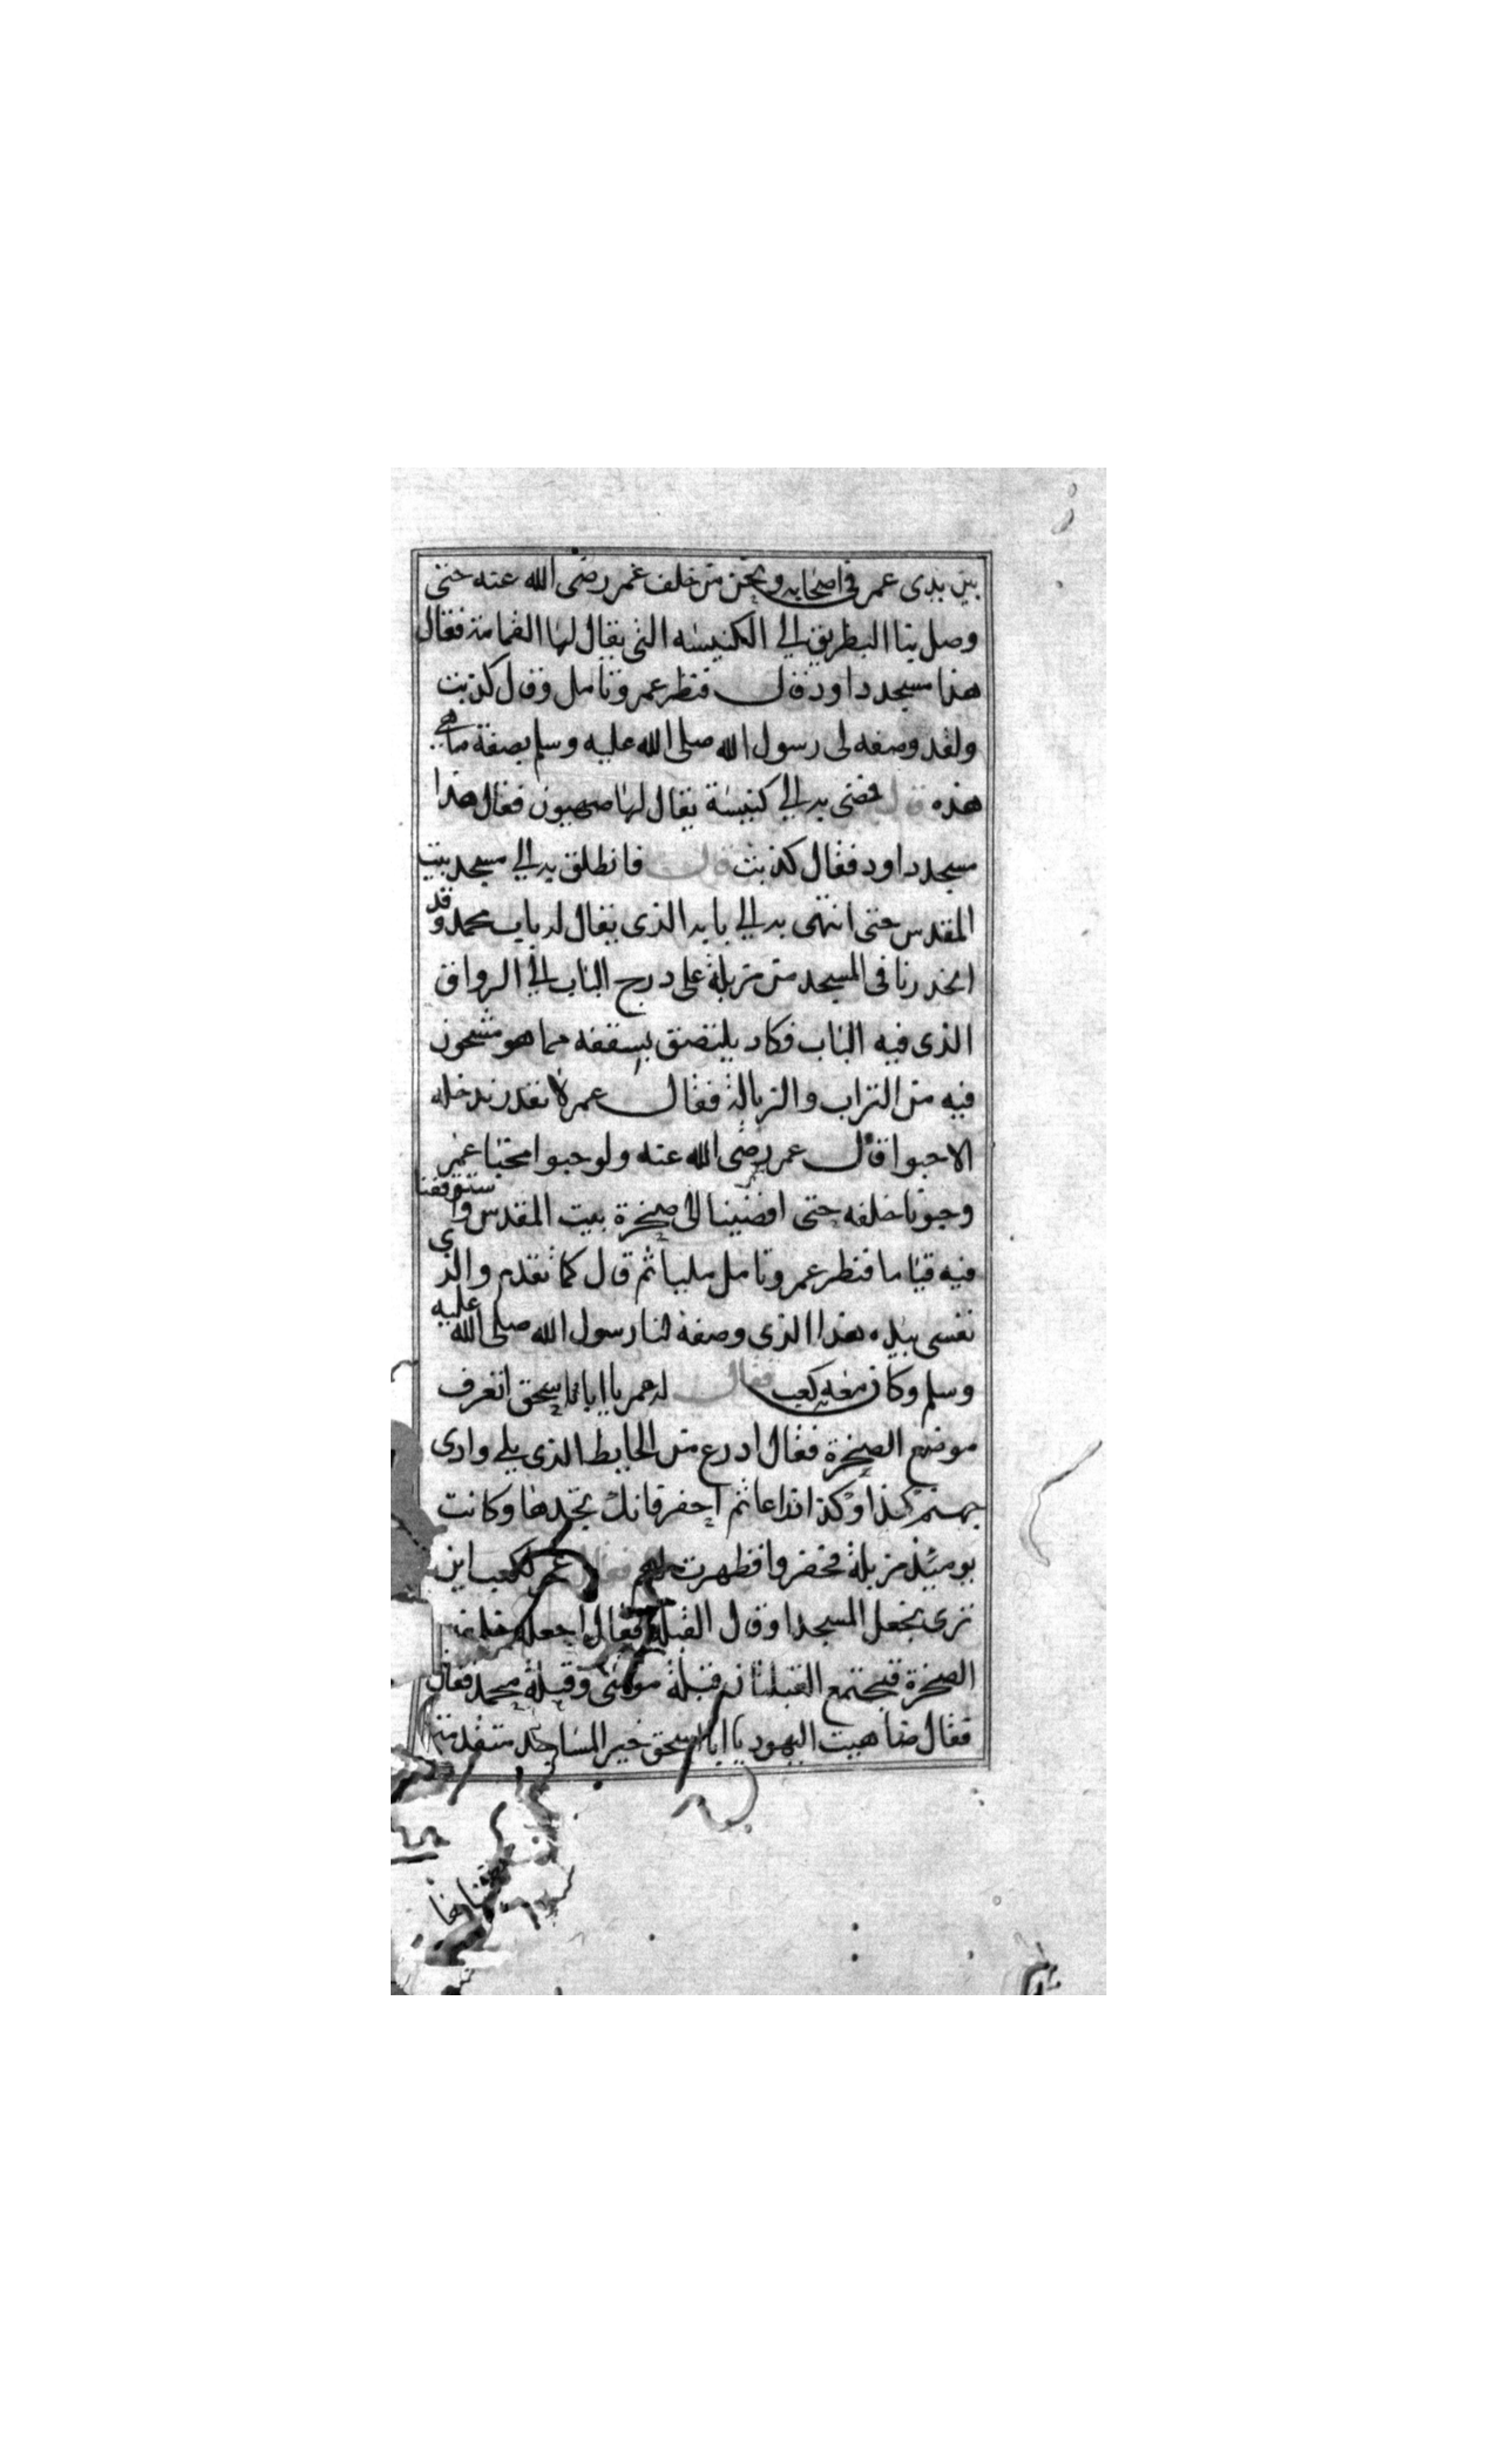 بين يدى عمر فى اصحابه ونحن من خلف عمر رضى الله عنه حتى
وصل بنا البطريق الى الكنيسه التى يقال لها القمامة فقال
هذا مسجد داود قال فنظر عمر وتامل وقال كذبت
ولقد وصفه لى رسول الله صلى الله عليه وسلم بصفة ما هى
هذه قال فمضى به الى كنيسة يقال لها صهيون فقال هذا
مسجد داود فقال كذبت قال فانطلق به الى مسجد بيت
المقدس حتى انتهى به الى بابه الذى يقال له باب محمد وقد
انحدر نا فى المسجد من مزبلة على درج الباب الى الرواق
الذى فيه الباب فكاد يلتصق بسقفه مما هو مشحون
فيه من التراب والزبالة فقال عمر لا نقدر ندخله
الا حبوا قال عمر رضى الله عنه ولو حبوا فحبا عمر
وحبونا خلفه حتى افضينا الى صخرة بيت المقدس واستوقفنا
فيه قياما فنظر عمر وتامل مليا ثم قال كما تقدم والذى
نفسى بيده هذا الذى وصفه لنا رسول الله صلى الله عليه
وسلم وكان معه كعب فقال له عمر يا ابا اسحق اتعرف
موضع الصخرة فقال ادرع من الحايط الذى يلى وادى
جهنم كذا وكذا ذراعا ثم احفر فانك تجدها وكانت
يوميذ مزبلة فحفروا فظهرت لهم فقال عمر لكعب اين
ترى نجعل المسجد او قال القبلة فقال اجعله خلف
الصخرة فتجتمع القبلتان قبلة موسى وقبلة محمد فقال
فقال ضاهيت اليهود يا ابا اسحق خير المساجد مقدمتها